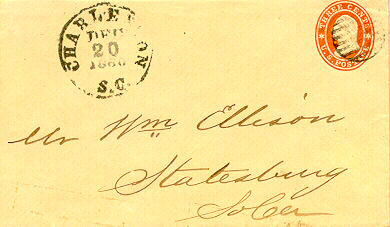 CHARLESTON
DEC
20
1860
S.C.
THREE CENTS
U.S. POSTAGE
Mr Wm Ellison
Statesburg
So Ca